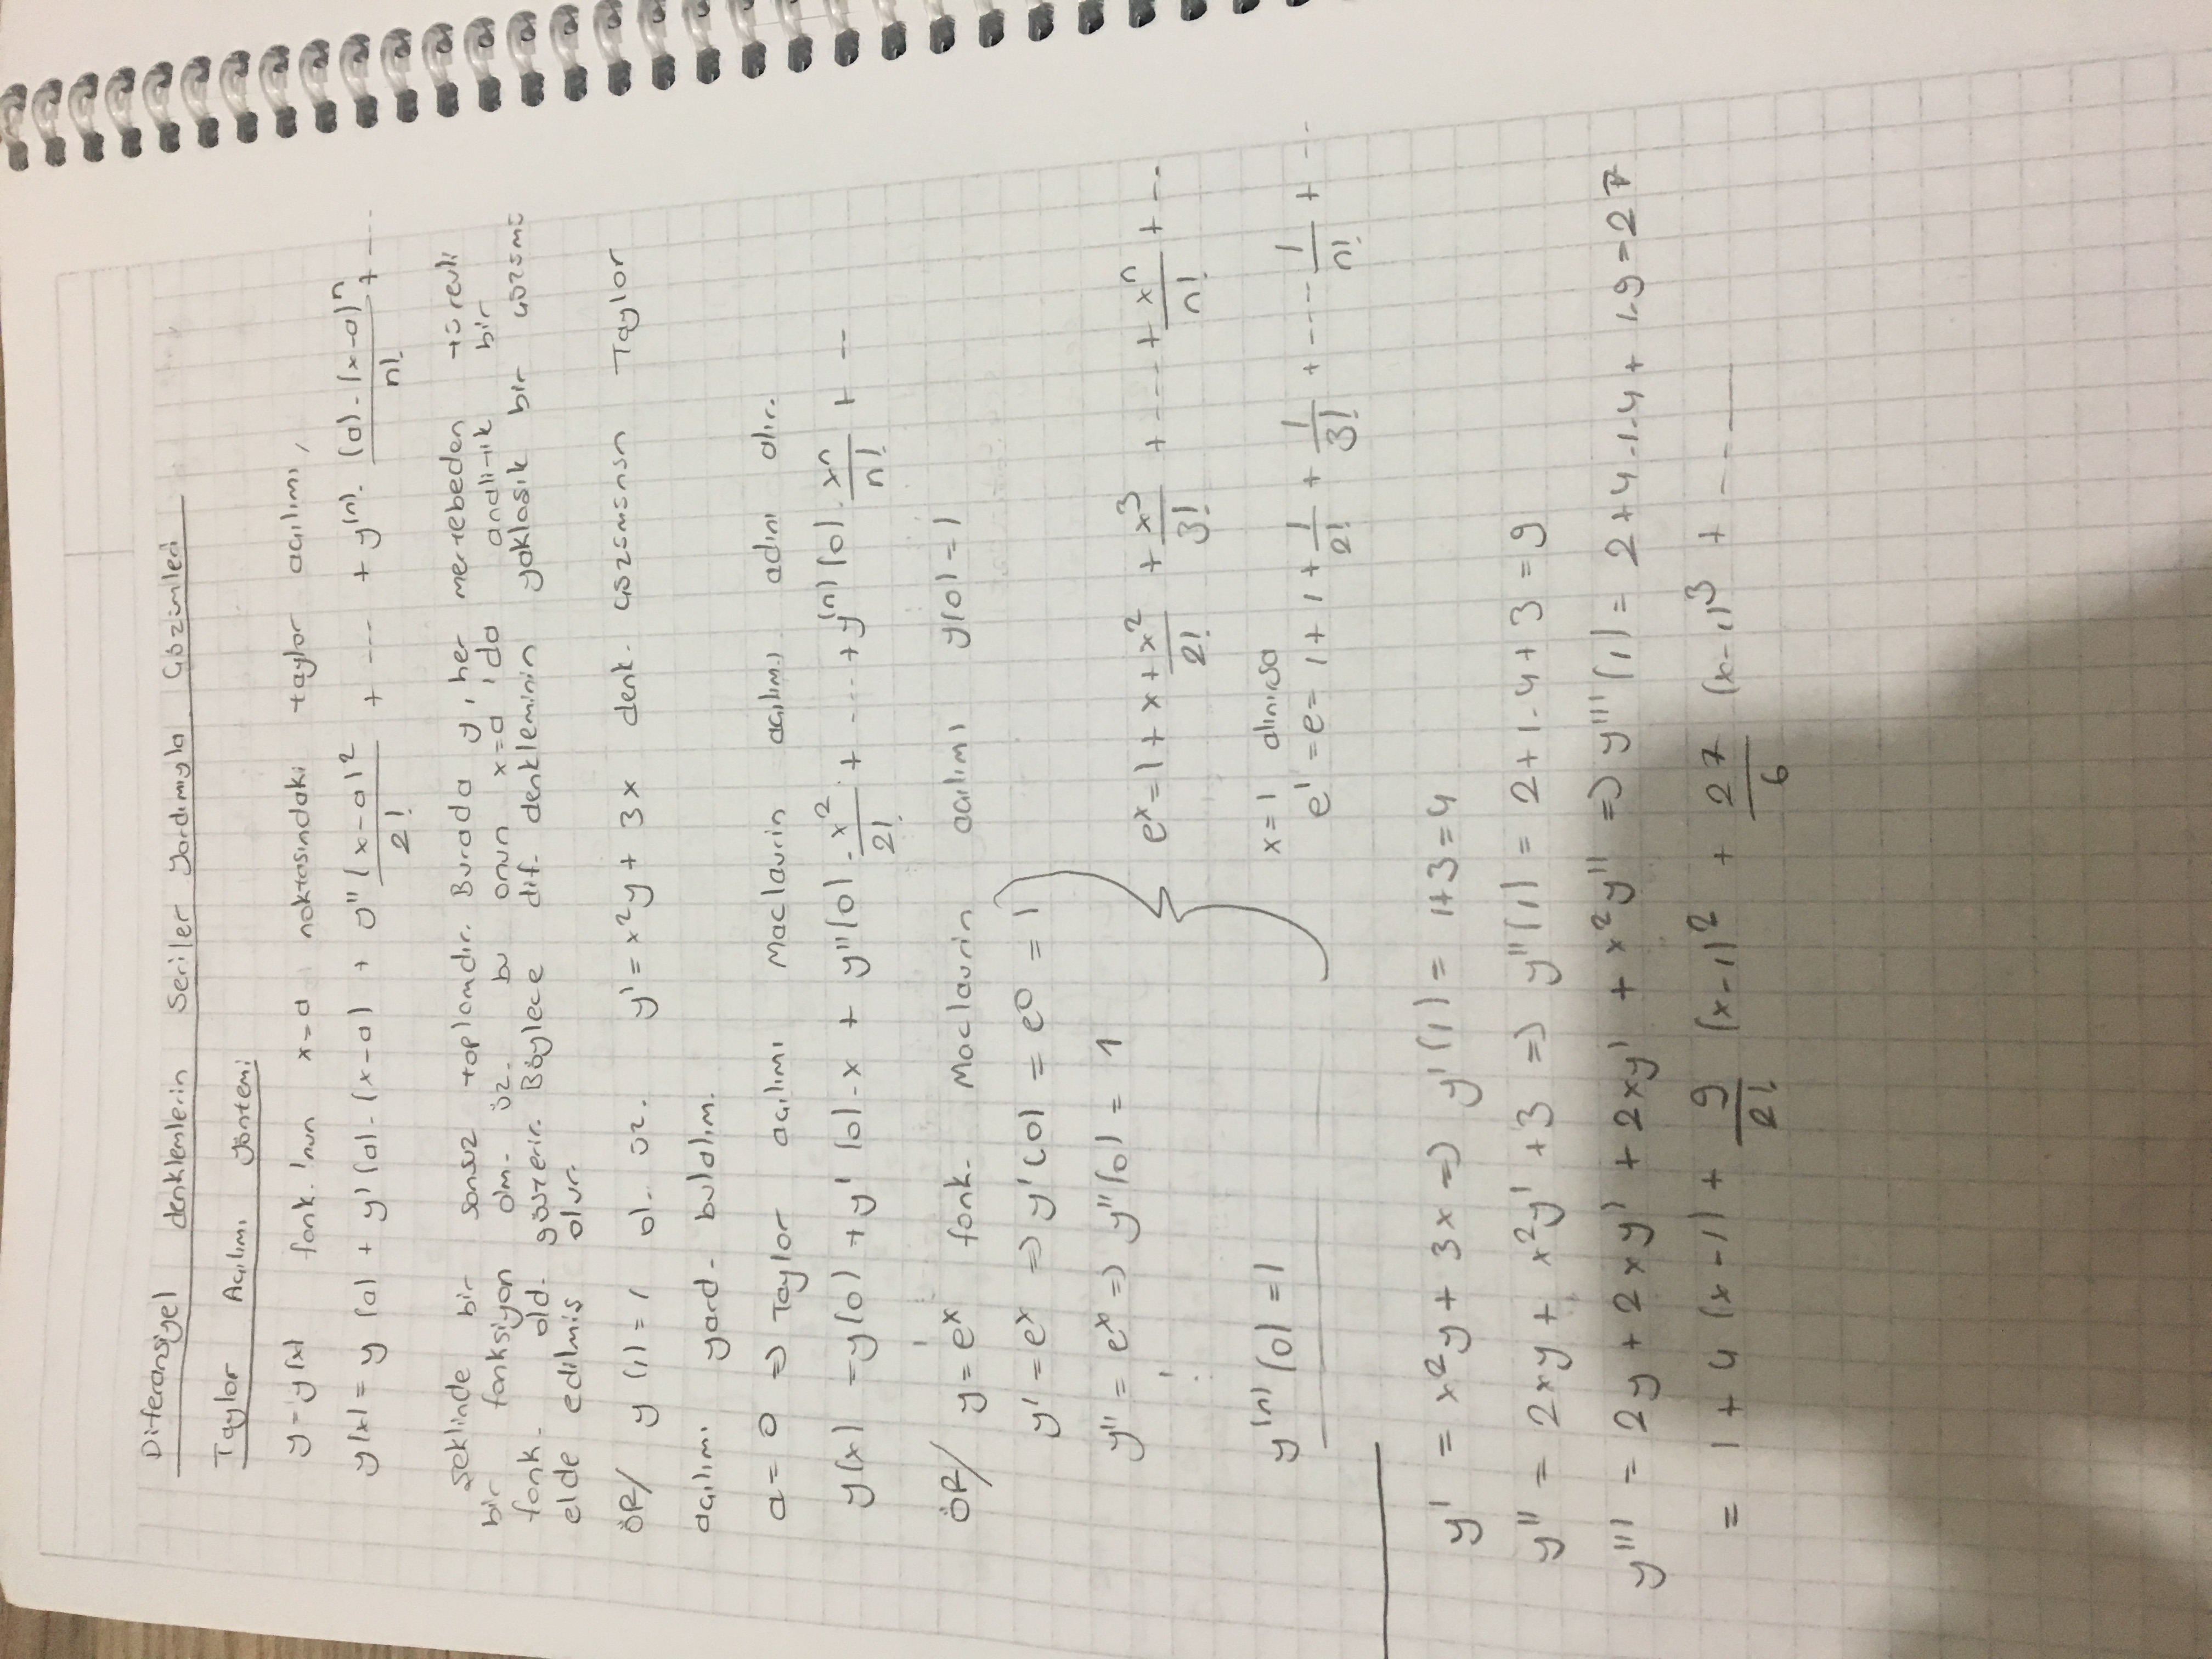 Diferansiyel denklemlerin Seriler Yardımıyla Çözümleri
Taylor Açılımı Yöntemi
y=y(x) fonk.'nun x=a noktasındaki taylor açılımı,
y(x) = y(a) + y'(a).(x-a) + y'' (x-a)²/2! + ---- + y⁽ⁿ⁾. (a).(x-a)ⁿ/n! + ----
şeklinde bir sonsuz toplamdır. Burada y, her mertebeden türevli
bir fonksiyon olm. üz. bu onun x=a 'da analitik bir
fonk. old. gösterir. Böylece dif. denkleminin yaklaşık bir çözümü
elde edilmiş olur.
ÖR/ y(1)=1 ol. üz. y'=x²y+3x denk. çözümünün Taylor
açılımı yard. bulalım.
a=0 => Taylor açılımı Maclaurin açılımı adını alır.
y(x) = y(0) + y'(0).x + y''(0).x²/2! + ---- + y⁽ⁿ⁾(0).xⁿ/n! + --
ÖR/ y=eˣ fonk. Maclaurin açılımı y(0)=1
y' = eˣ => y'(0) = e⁰ = 1
y'' = eˣ => y''(0) = 1
⋮
eˣ=1+x+x²/2! + x³/3! + ---- + xⁿ/n! + --
y⁽ⁿ⁾(0)=1
x=1 alınırsa
e¹ =e= 1+1+1/2! + 1/3! + ---- 1/n! + --
y' = x²y+3x => y'(1) = 1+3=4
y'' = 2xy + x²y' +3 => y''(1) = 2+1.4+3 =9
y''' = 2y+2xy' +2xy' + x²y'' => y'''(1) = 2+4.1.4+ 1.9=27
= 1+4(x-1)+ 9/2! (x-1)² + 27/6 (x-1)³ + ----